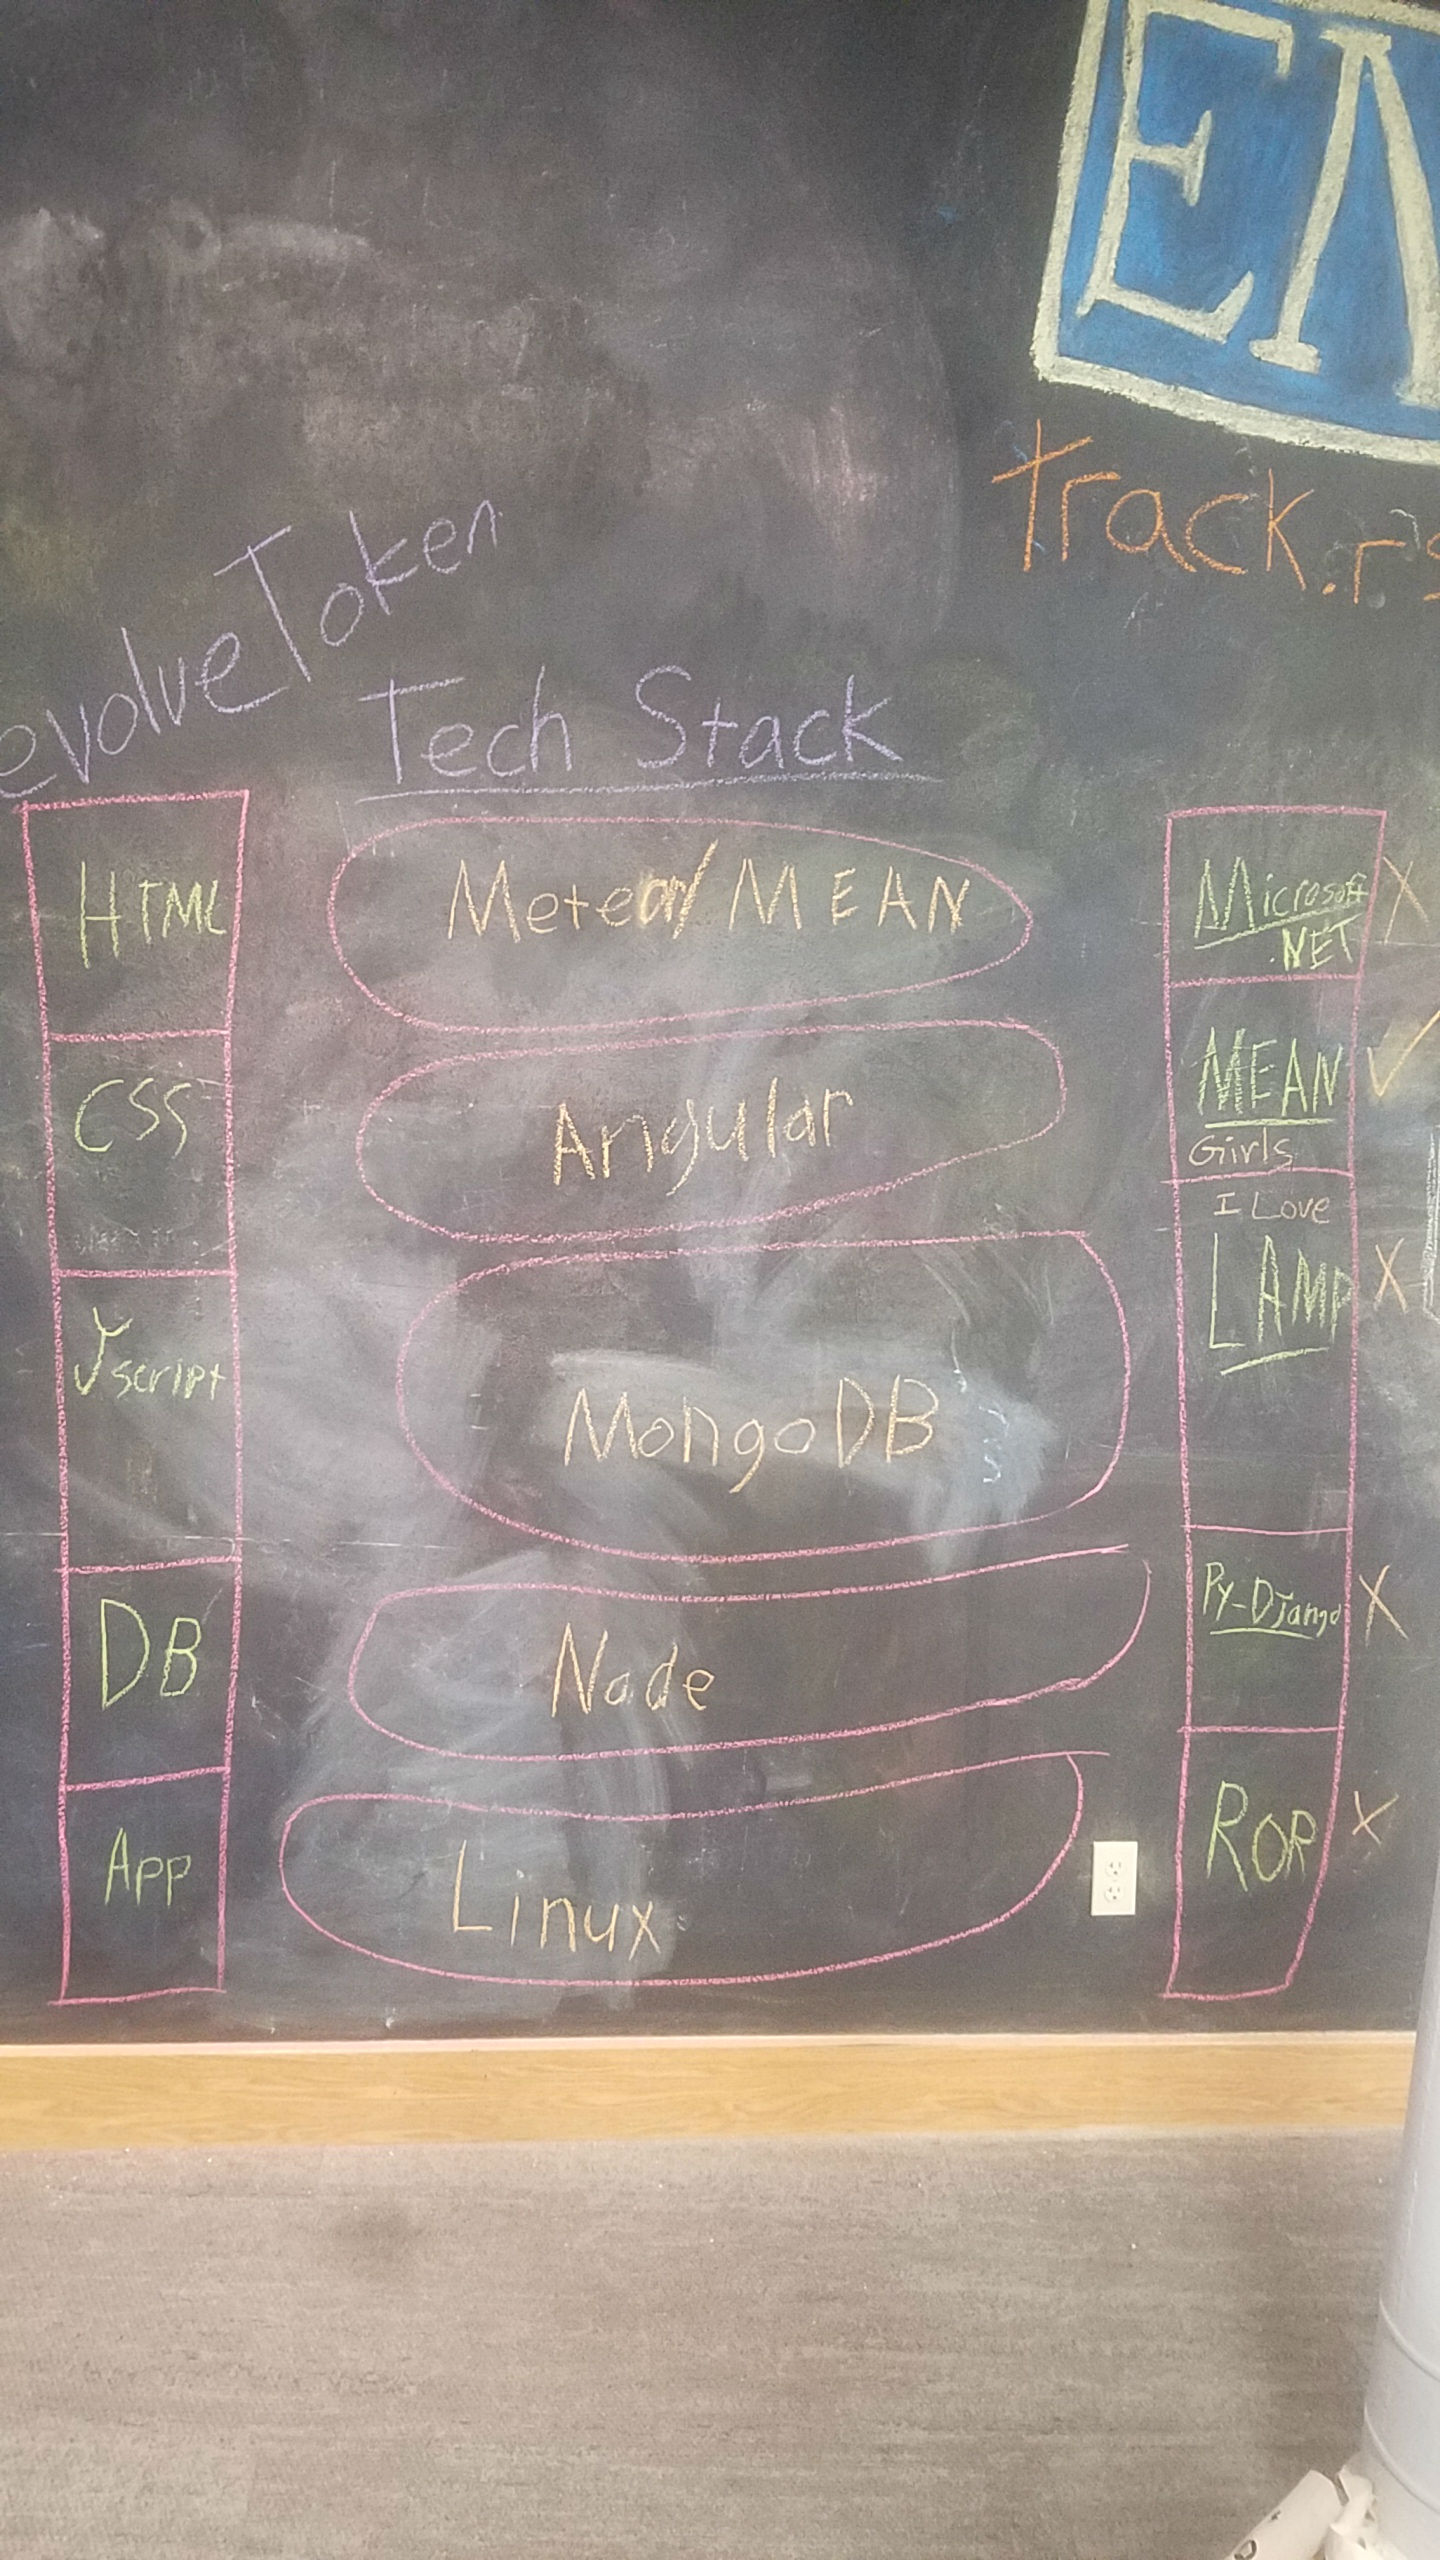 track.rs
evolveToken
Tech Stack
HTML
CSS
Jscript
DB
App
Meteor/MEAN
Angular
MongoDB
Node
Linux
Microsoft X
.NET
MEAN ✓
Girls
I Love
LAMP X
Py-Django X
ROR X